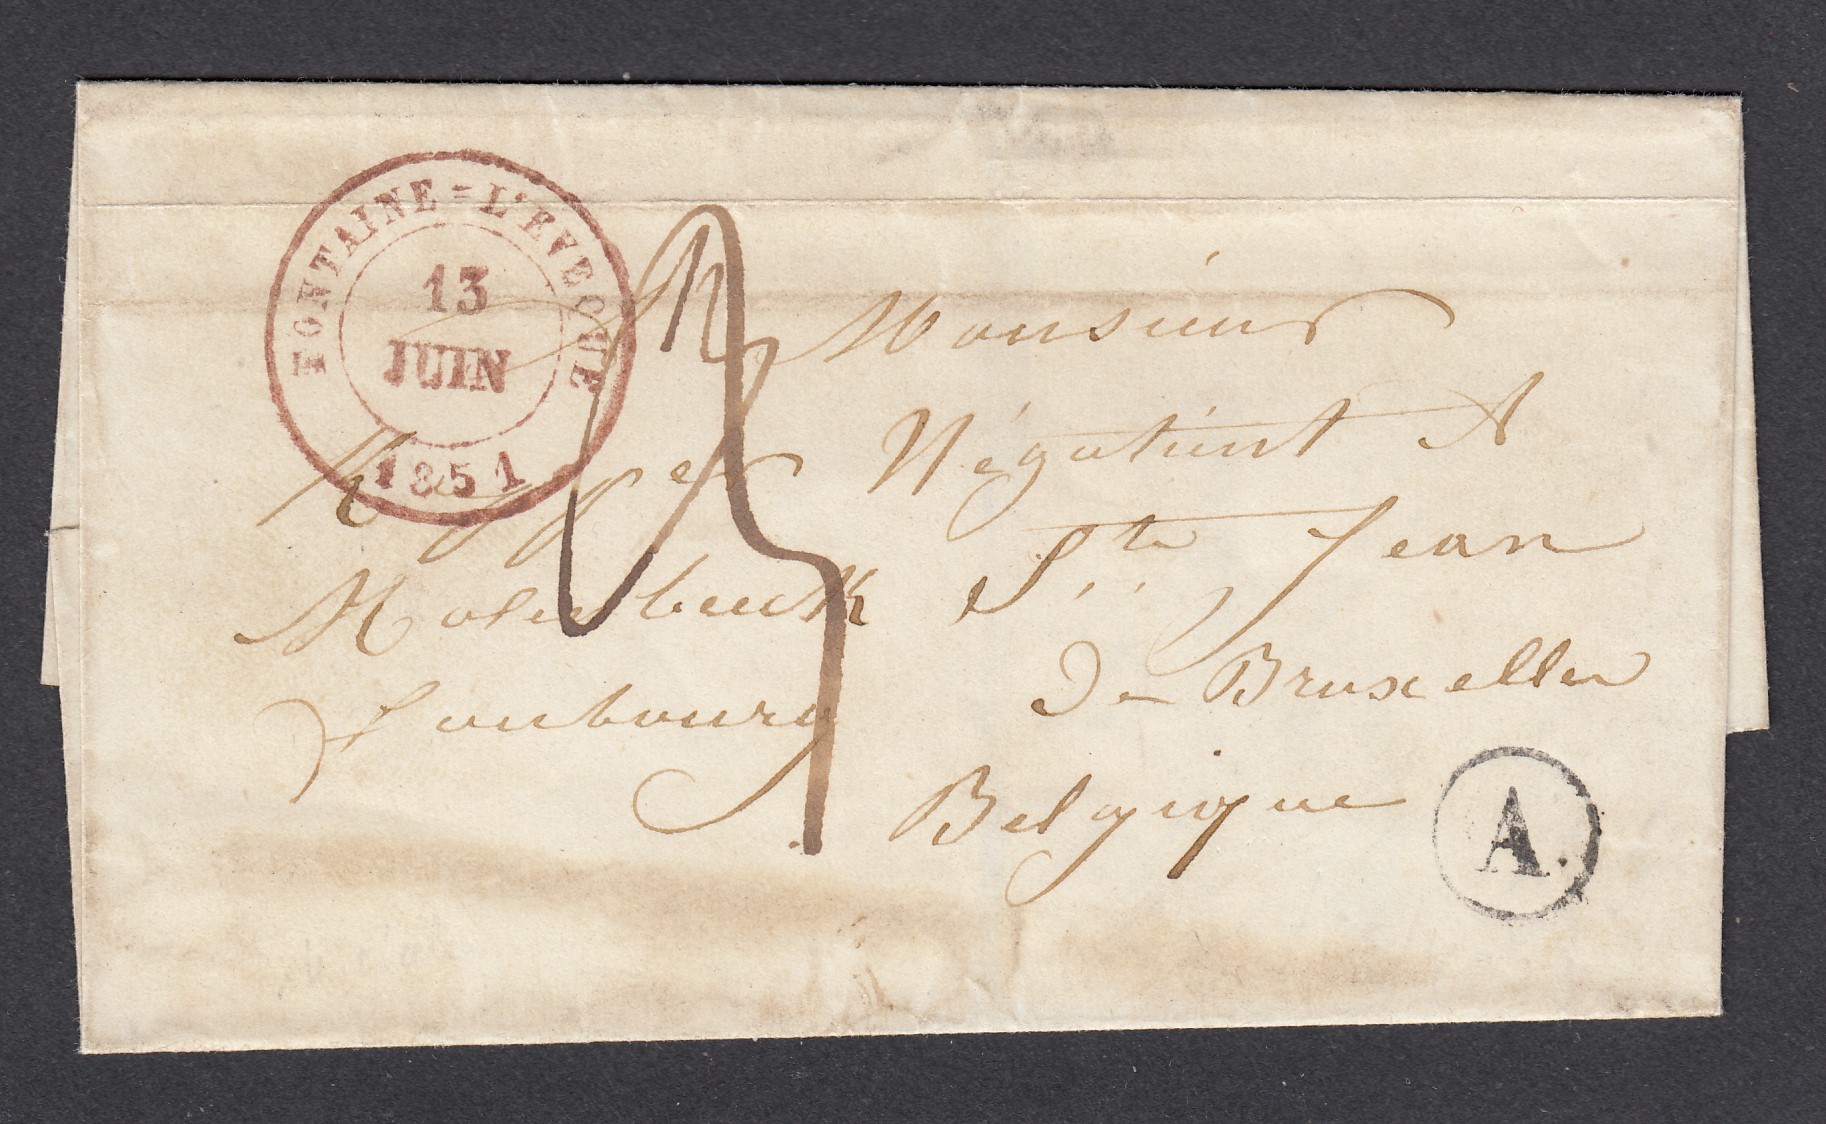 FONTAINE-L'EVEQUE
13
JUIN
1851
Monsieur
Négotient A
Molenbeuk Ste Jean
faubourg De Bruxelles
Belgique
A.